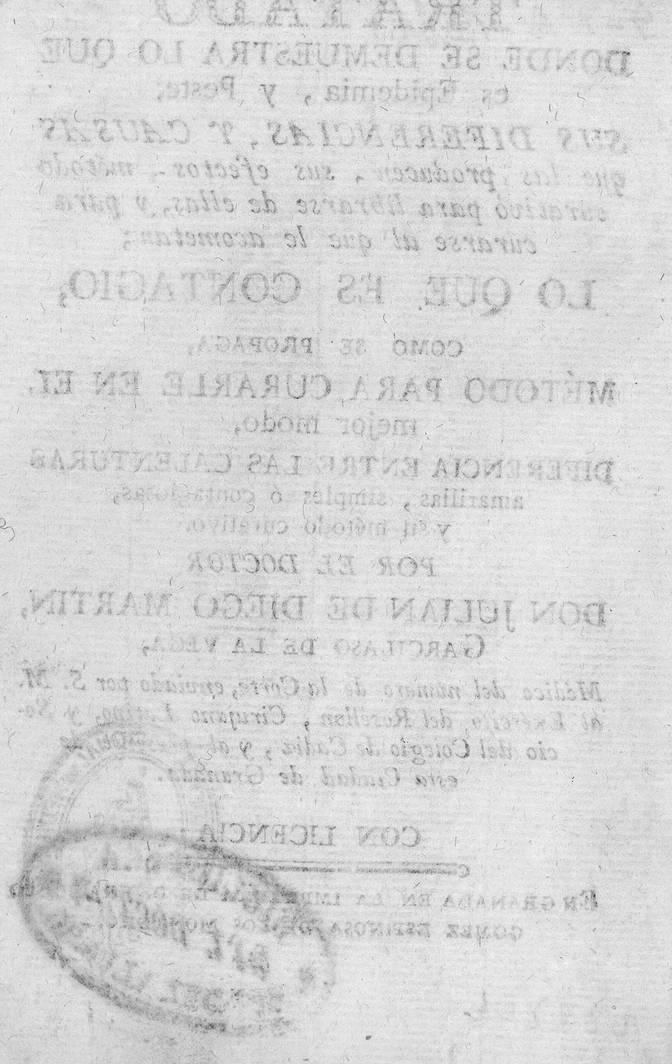 TRATADO
DONDE SE DEMUESTRA LO QUE
es Epidemia, y Peste;
SUS DIFERENCIAS, Y CAUSAS
que las producen, sus efectos, método
curativo para librarse de ellas, y para
curarse al que le acometan;
LO QUE ES CONTAGIO,
COMO SE PROPAGA,
MÉTODO PARA CURARLE EN EL
mejor modo,
DIFERENCIA ENTRE LAS CALENTURAS
amarillas, simples ó contagiosas,
y su método curativo.
POR EL DOCTOR
DON JULIAN DE DIEGO MARTIN,
GARCILASO DE LA VEGA,
Médico del número de la Corte, enviado por S. M.
al Exército del Rosellon, Cirujano Latino, y So-
cio del Colegio de Cadiz, y al presente de
esta Ciudad de Granada.
CON LICENCIA
EN GRANADA EN LA IMPRENTA DE
GOMEZ ESPINOSA DE LOS MONTEROS